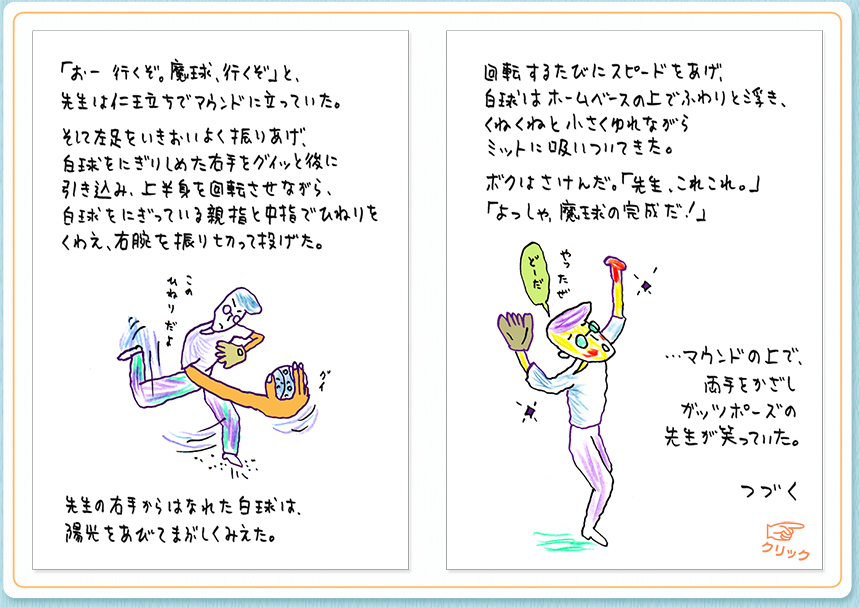 「おー 行くぞ。魔球、行くぞ」と、
先生は仁王立ちでマウンドに立っていた。
そして左足をいきおいよく振りあげ、
白球をにぎりしめた右手をグイッと後に
引き込み、上半身を回転させながら、
白球をにぎっている親指と中指でひねりを
くわえ、右腕を振り切って投げた。
この
ひねりだよ
グイ
先生の右手からはなれた白球は、
陽光をあびてまぶしくみえた。
回転するたびにスピードをあげ、
白球はホームベースの上でふわりと浮き、
くねくねと小さくゆれながら
ミットに吸いついてきた。
ボクはさけんだ。「先生、これこれ。」
「よっしゃ、魔球の完成だ！」
やったぜ
どーだ
…マウンドの上で、
両手をかざし
ガッツポーズの
先生が笑っていた。
つづく
クリック